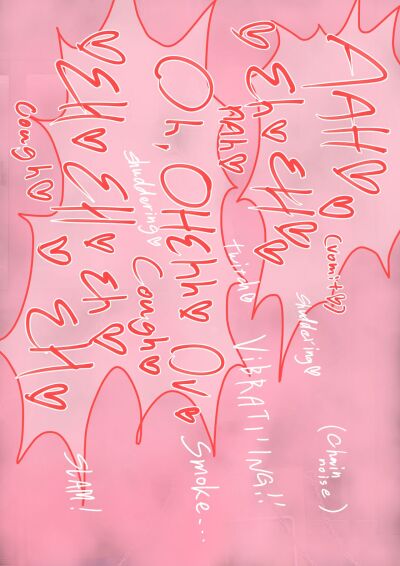 AAH♡♡
(vomit♡)
Eh♡EH♡♡
AAh♡
Oh, OHEhh♡OV♡
cough♡
♡EH♡EH♡Eh♡EH♡
cough♡
shuddering♡
shuddering♡
twitch♡
VIBRATI'ING!!
(Chain
noise)
Smoke...
SLAM!